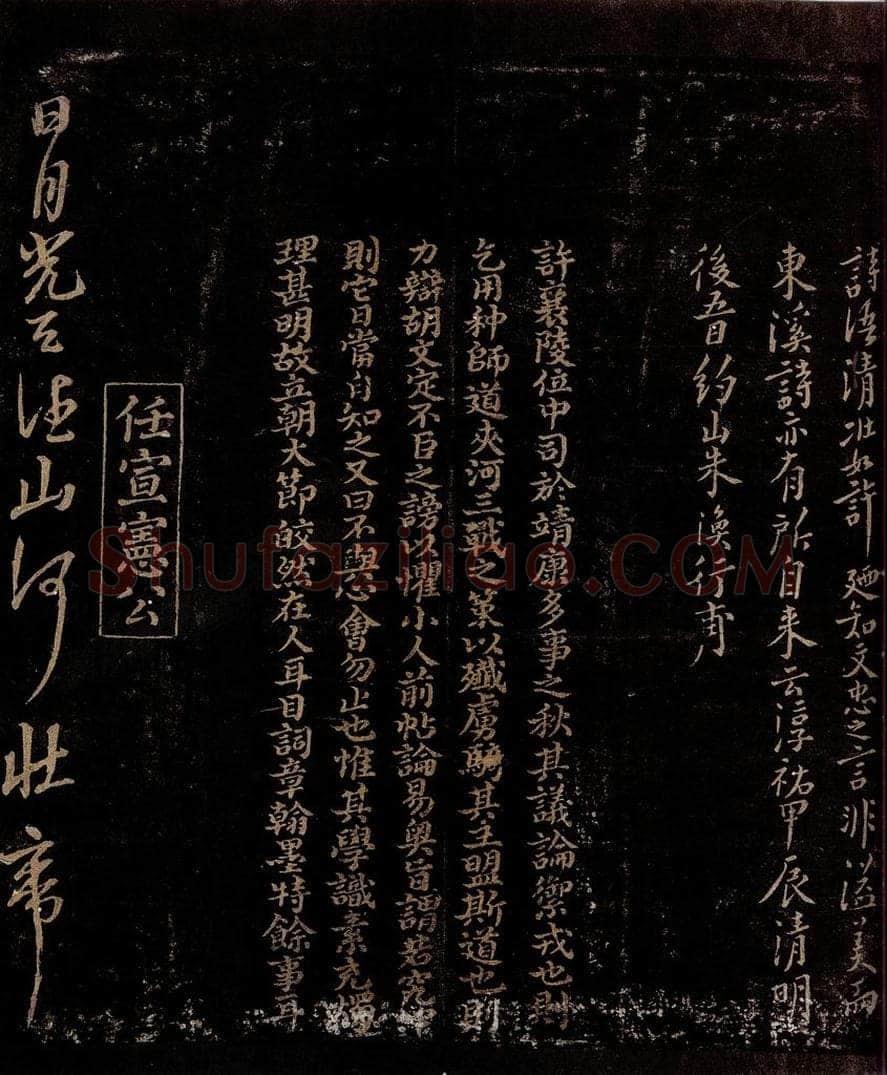 詩語清壯如許廼知文忠之言非溢美而
東溪詩亦有所自来云淳祐甲辰清明
後五日約山朱渙行甫
許襄陵位中司於靖康多事之秋其議論禦戎也則
乞用种師道夾河三戰之策以殲虜騎其主盟斯道也則
力辯胡文定不臣之謗以懼小人前帖論易奥旨謂若究
則它日當自知之又曰不與心會勿止也惟其學識素充
理甚明故立朝大節皎然在人耳目詞章翰墨特餘事耳
任宣憲公
日月光天德山河壯帝
Shufaziliao.COM